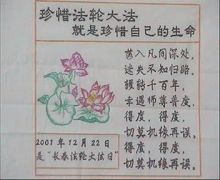 珍惜法轮大法
就是珍惜自己的生命
甚入凡间深处,
迷失不知归路。
辗转千百年,
幸遇师尊普度,
得度,得度,
切莫机缘再误。
得度,得度,
切莫机缘再误。
2001年12月22日
是“长春法轮大法日”